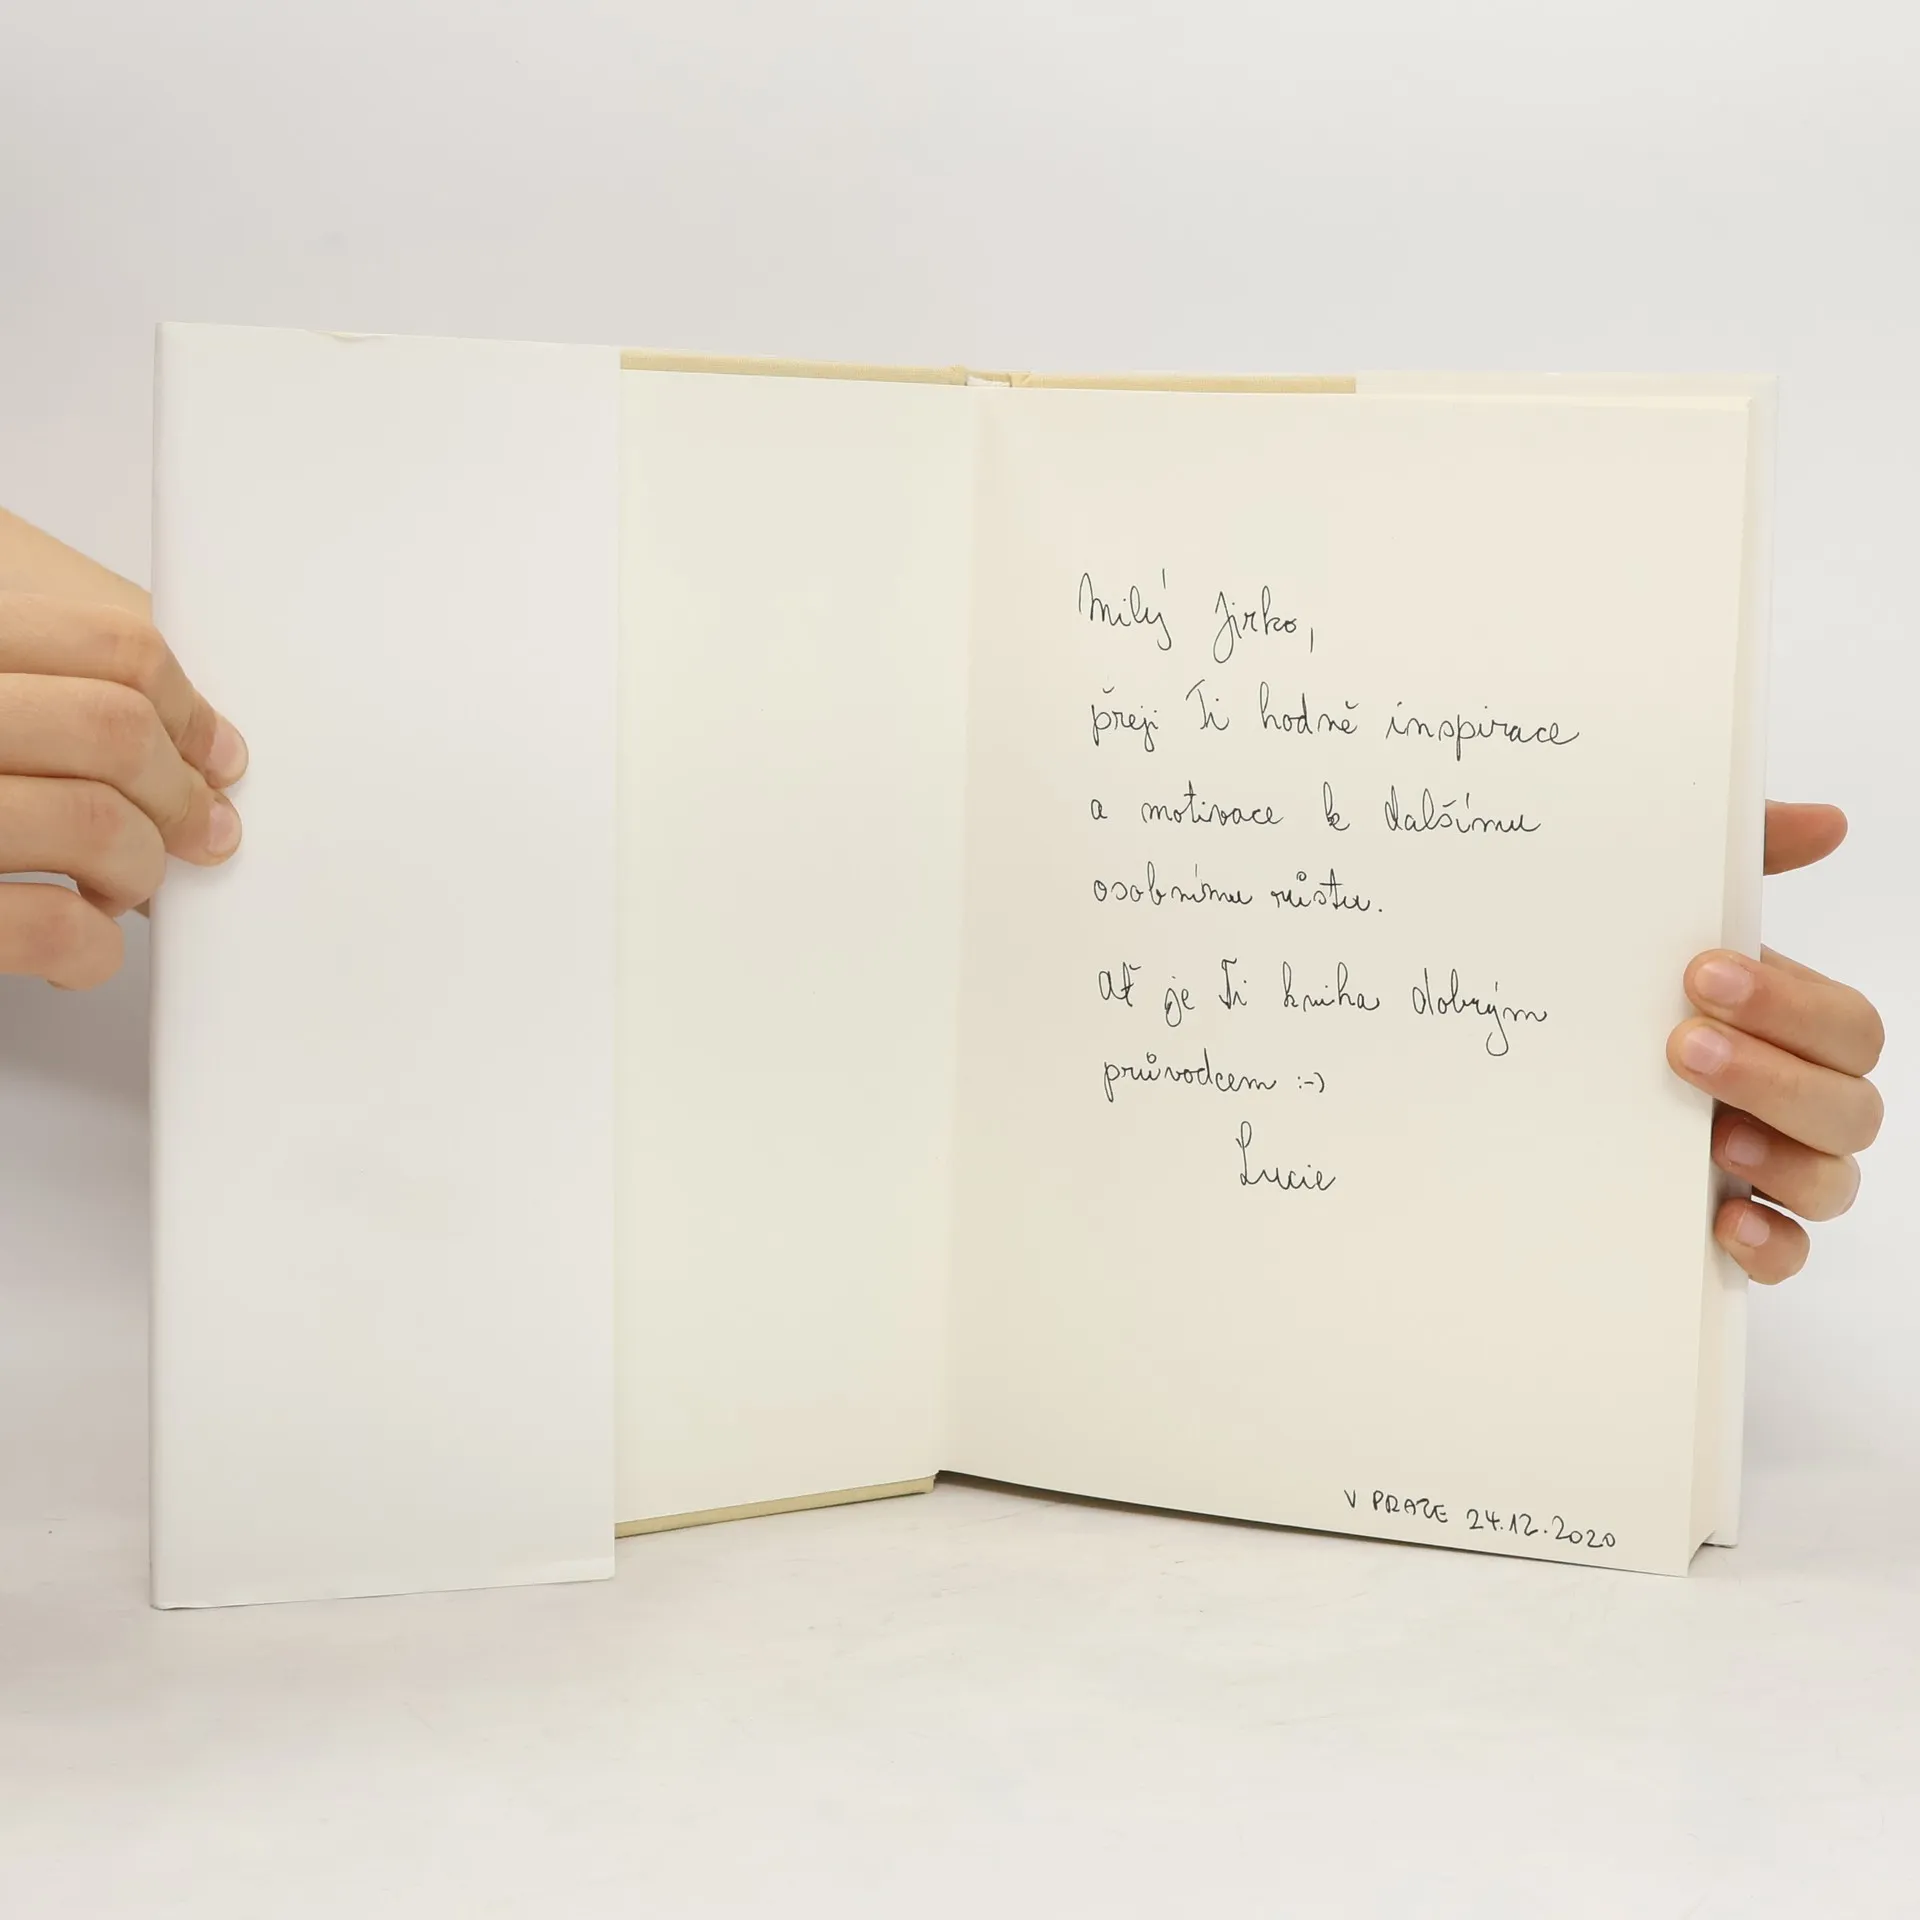 Milý Jirko,
přeji Ti hodně inspirace
a motivace k dalšímu
osobnímu růstu.
Ať je Ti kniha dobrým
průvodcem :-)
Lucie
V PRAZE 24.12.2020